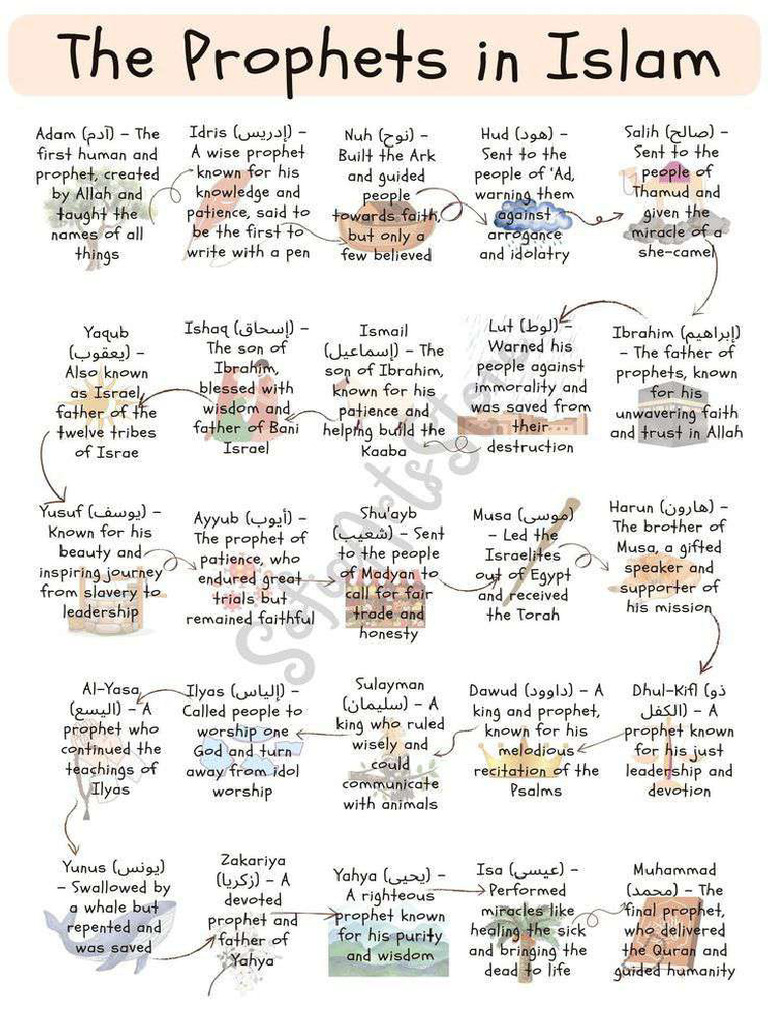 The Prophets in Islam
Adam (آدم) – The
first human and
prophet, created
by Allah and
taught the
names of all
things
Idris (إدريس) –
A wise prophet
known for his
knowledge and
patience, said to
be the first to
write with a pen
Nuh (نوح) –
Built the Ark
and guided
people
towards faith,
but only a
few believed
Hud (هود) –
Sent to the
people of 'Ad,
warning them
against
arrogance
and idolatry
Salih (صالح) –
Sent to the
people of
Thamud and
given the
miracle of a
she-camel
Ibrahim (إبراهيم)
– The father of
prophets, known
for his
unwavering faith
and trust in Allah
Lut (لوط) –
Warned his
people against
immorality and
was saved from
their
destruction
Ismail
(إسماعيل) – The
son of Ibrahim,
known for his
patience and
helping build the
Kaaba
Ishaq (إسحاق) –
The son of
Ibrahim,
blessed with
wisdom and
father of Bani
Israel
Yaqub
(يعقوب) –
Also known
as Israel,
father of the
twelve tribes
of Israe
Yusuf (يوسف) –
Known for his
beauty and
inspiring journey
from slavery to
leadership
Ayyub (أيوب) –
The prophet of
patience, who
endured great
trials but
remained faithful
Shu'ayb
(شعيب) – Sent
to the people
of Madyan to
call for fair
trade and
honesty
Musa (موسى)
– Led the
Israelites
out of Egypt
and received
the Torah
Harun (هارون) –
The brother of
Musa, a gifted
speaker and
supporter of
his mission
Dhul-Kifl (ذو
الكفل) – A
prophet known
for his just
leadership and
devotion
Dawud (داوود) – A
king and prophet,
known for his
melodious
recitation of the
Psalms
Sulayman
(سليمان) – A
king who ruled
wisely and
could
communicate
with animals
Ilyas (إلياس) –
Called people to
worship one
God and turn
away from idol
worship
Al-Yasa
(اليسع) – A
prophet who
continued the
teachings of
Ilyas
Yunus (يونس)
– Swallowed by
a whale but
repented and
was saved
Zakariya
(زكريا) – A
devoted
prophet and
father of
Yahya
Yahya (يحيى) –
A righteous
prophet known
for his purity
and wisdom
Isa (عيسى) –
Performed
miracles like
healing the sick
and bringing the
dead to life
Muhammad
(محمد) – The
final prophet,
who delivered
the Quran and
guided humanity